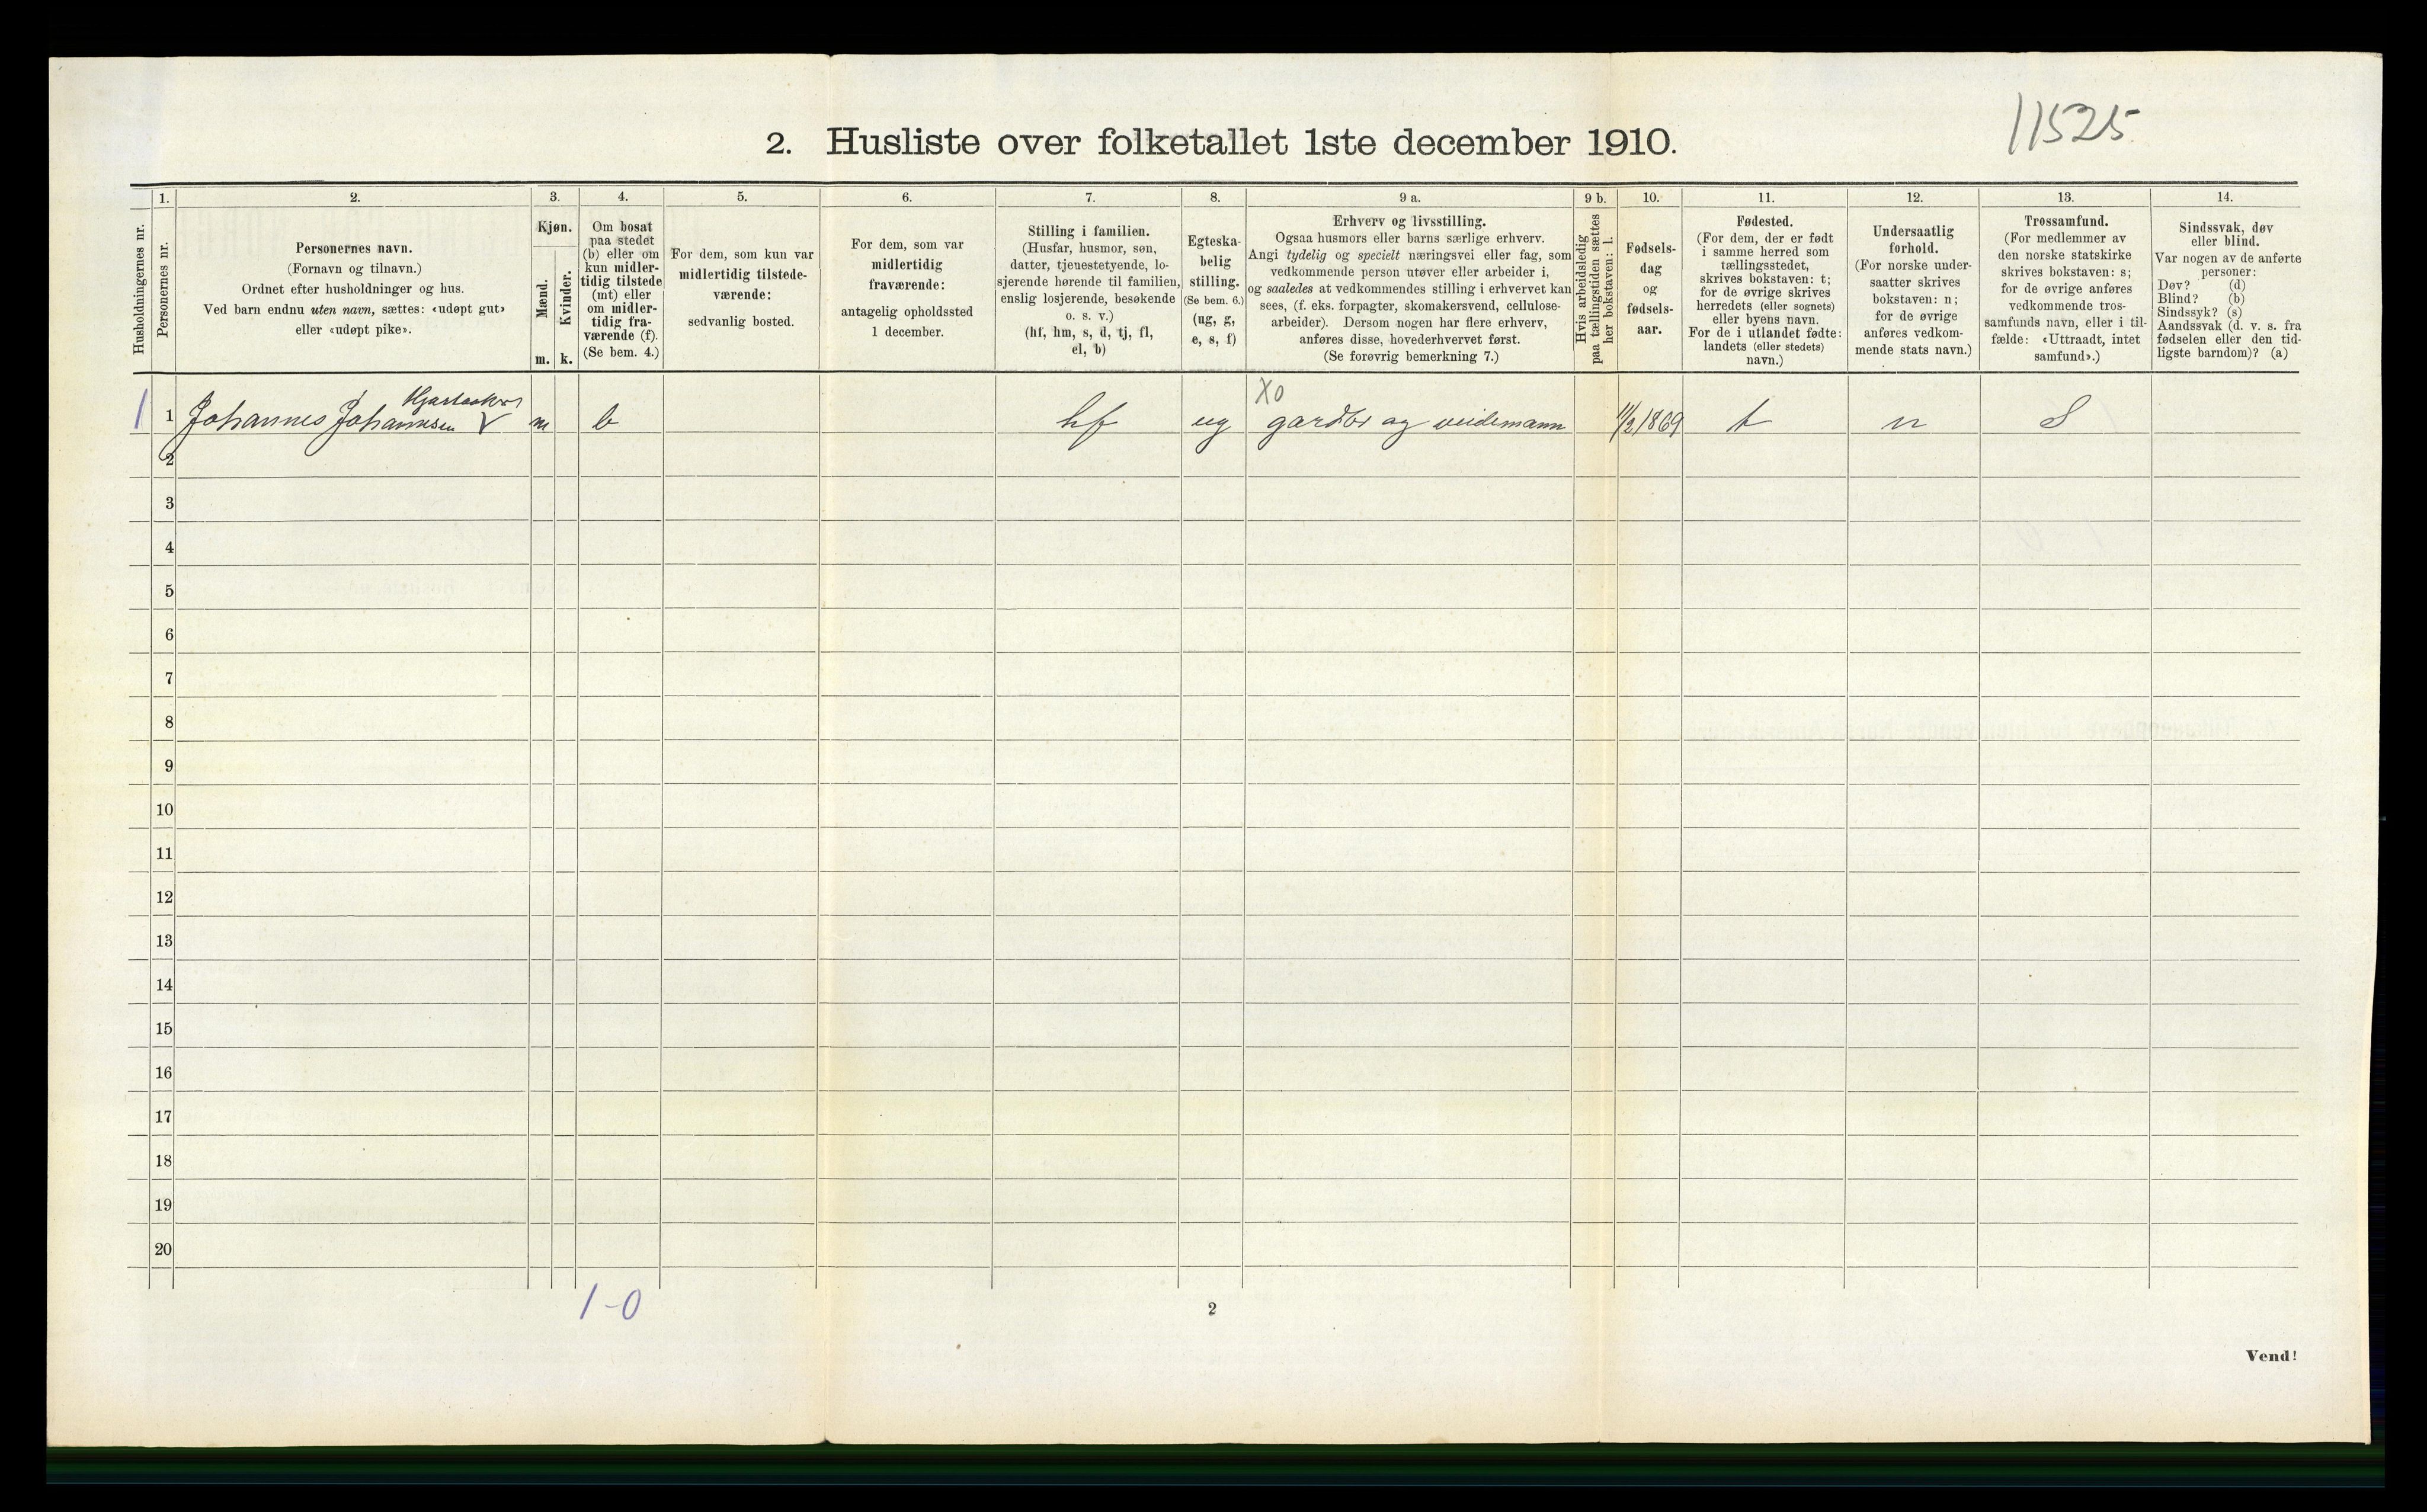 11525
2. Husliste over folketallet 1ste december 1910.
Husholdningernes nr.
1.
Personernes nr.
2.
Personernes navn.
(Fornavn og tilnavn.)
Ordnet efter husholdninger og hus.
Ved barn endnu uten navn, sættes: «udøpt gut»
eller «udøpt pike».
3.
Kjøn.
Mænd.
Kvinder.
m. k.
4.
Om bosat
paa stedet
(b) eller om
kun midler-
tidig tilstede
(mt) eller
om midler-
tidig fra-
værende (f).
(Se bem. 4.)
5.
For dem, som kun var
midlertidig tilstede-
værende:
sedvanlig bosted.
6.
For dem, som var
midlertidig
fraværende:
antagelig opholdssted
1 december.
7.
Stilling i familien.
(Husfar, husmor, søn,
datter, tjenestetyende, lo-
sjerende hørende til familien,
enslig losjerende, besøkende
o. s. v.)
(hf, hm, s, d, tj, fl,
el, b)
8.
Egteska-
belig
stilling.
(Se bem. 6.)
(ug, g,
e, s, f)
9 a.
Erhverv og livsstilling.
Ogsaa husmors eller barns særlige erhverv.
Angi tydelig og specielt næringsvei eller fag, som
vedkommende person utøver eller arbeider i,
og saaledes at vedkommendes stilling i erhvervet kan
sees, (f. eks. forpagter, skomakersvend, cellulose-
arbeider). Dersom nogen har flere erhverv,
anføres disse, hovederhvervet først.
(Se forøvrig bemerkning 7.)
9 b.
Hvis arbeidsledig
paa tællingstiden sættes
her bokstaven: l.
10.
Fødsels-
dag
og
fødsels-
aar.
11.
Fødested.
(For dem, der er født
i samme herred som
tællingsstedet,
skrives bokstaven: t;
for de øvrige skrives
herredets (eller sognets)
eller byens navn.
For de i utlandet fødte:
landets (eller stedets)
navn.)
12.
Undersaatlig
forhold.
(For norske under-
saatter skrives
bokstaven: n;
for de øvrige
anføres vedkom-
mende stats navn.)
13.
Trossamfund.
(For medlemmer av
den norske statskirke
skrives bokstaven: s;
for de øvrige anføres
vedkommende tros-
samfunds navn, eller i til-
fælde: «Uttraadt, intet
samfund».)
14.
Sindssvak, døv
eller blind.
Var nogen av de anførte
personer:
Døv? (d)
Blind? (b)
Sindssyk? (s)
Aandssvak (d. v. s. fra
fødselen eller den tid-
ligste barndom)? (a)
X0
1 1 Johannes Johannesen V m b hf ug gardbr og veidemann 11/2 1869 t n S
2
3
4
5
6
7
8
9
10
11
12
13
14
15
16
17
18
19
20
1-0
2
Vend!